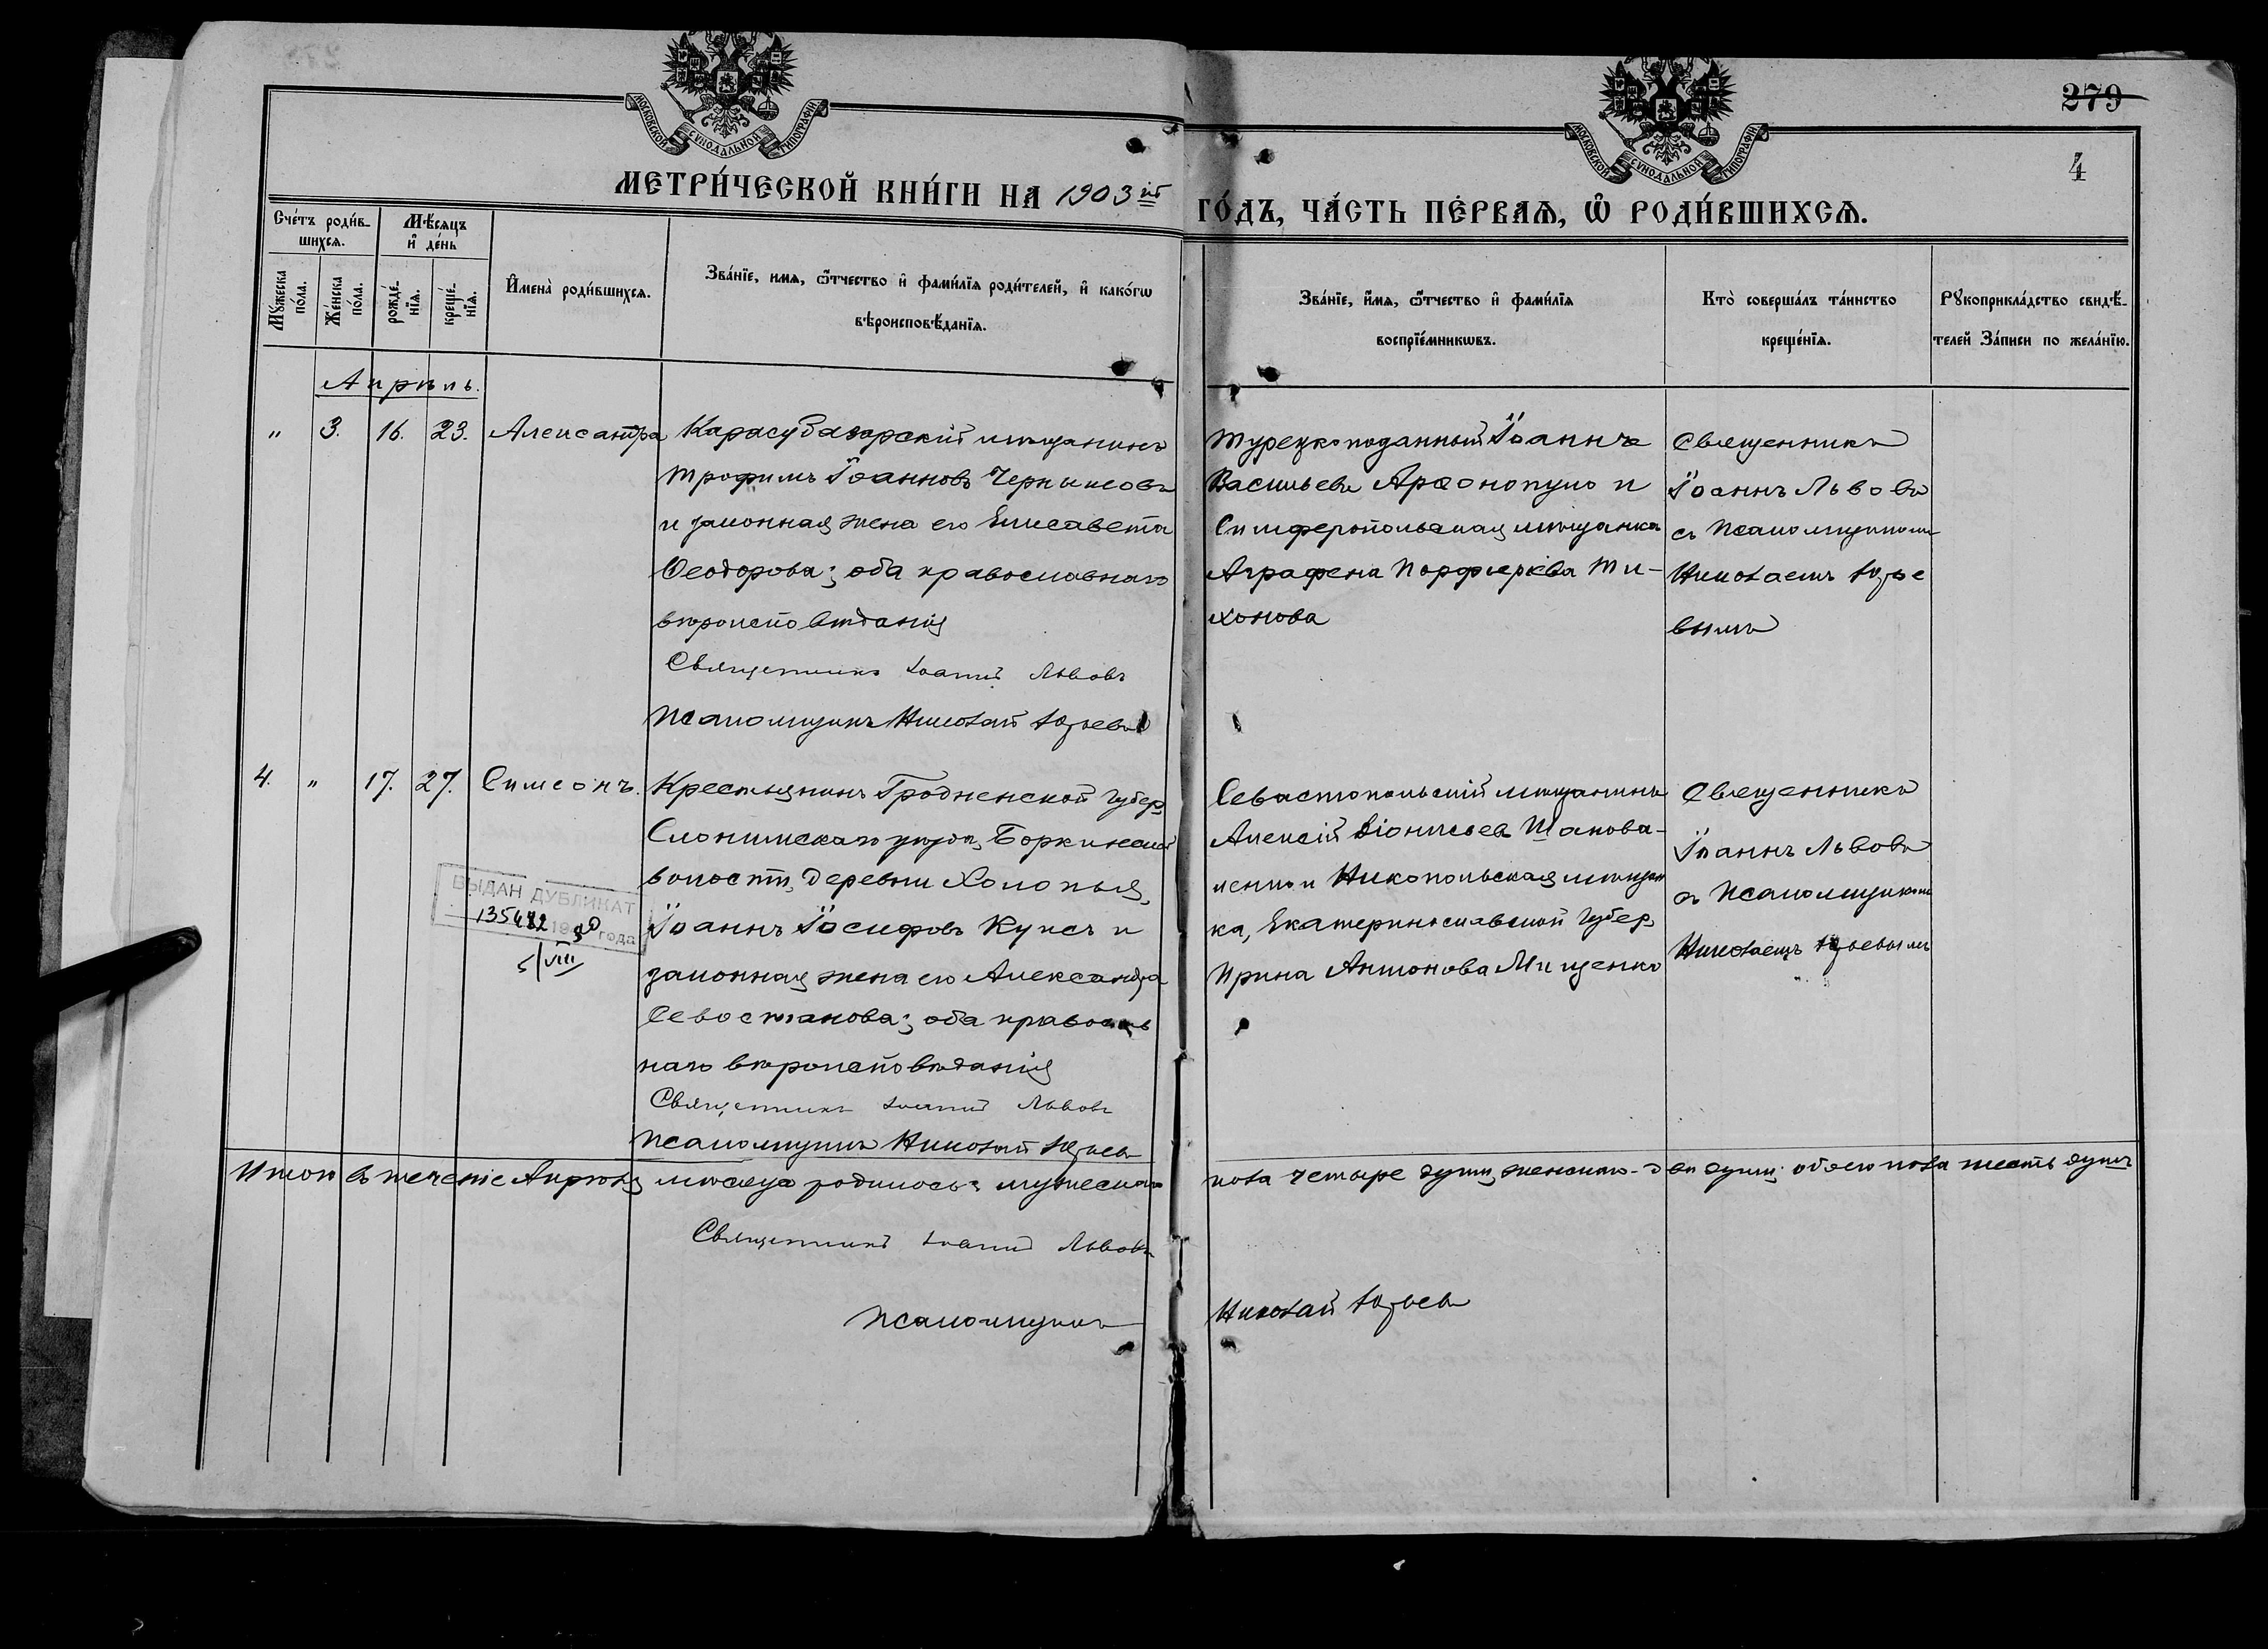 279
4
МОСКОВСКОЙ СУНОДАЛЬНОЙ ТИПОГРАФІИ
МОСКОВСКОЙ СУНОДАЛЬНОЙ ТИПОГРАФІИ
МЕТРИ́ЧЕСКОЙ КНИ́ГИ НА 1903 й
ГО́ДЪ, ЧА́СТЬ ПЕ́РВАѦ, Ѽ РОДИ́ВШИХСѦ.
Сче́тъ роди́в-
шихсѧ.
Мѣ́сѧцъ
и҆ де́нь
Мꙋжеска по́ла.
Же́нска по́ла.
рожде́-нїѧ.
креще́-нїѧ.
И҆мена̀ роди́вшихсѧ.
Зва́нїе, имѧ, ѻ҆́тчество и҆ фами́лїѧ роди́телей, и҆ како́гѡ
вѣроисповѣ́данїѧ.
Зва́нїе, и҆́мѧ, ѻ҆́тчество и҆ фами́лїѧ
воспрїе́мникѡвъ.
Кто̀ соверша́лъ та́инство
креще́нїѧ.
Рꙋкоприкла́дство свидѣ́-
телей За́писи по жела́нїю.
Апрѣль.
" 3. 16. 23. Александра
Карасубазарскій мѣщанинъ
Трофимъ Іоанновъ
и законная жена его Елисавета
Ѳеодорова; оба православнаго
вѣроисповѣданія
Священникъ Іоаннъ Львовъ
Псаломщикъ Николай Юрьевъ
Турецкоподанный Іоаннъ
Васильевъ и
Симферопольская мѣщанка
Аграфена Порфирьева Ти-
хонова
Священникъ
Іоаннъ Львовъ
съ Псаломщикомъ
Николаемъ Юрье
вымъ
4. " 17. 27. Симеонъ.
Крестьянинъ Гродненской губер,
Слонимскаго уѣзда, Боркинской
волости, деревни Холопья,
Іоаннъ Іосифовъ Кунсъ и
законная жена его Александра
Севостьянова; оба православ
наго вѣроисповѣданія
Священникъ Іоаннъ Львовъ
Псаломщикъ Николай Юрьевъ
ВЫДАН ДУБЛИКАТ
135482 19 года
5/VIII
Севастопольскій мѣщанинъ
Алексій Діонисьевъ Шапова-
ленко и Никопольская мѣщан
ка, Екатеринославской губер,
Ирина Антонова Мищенко
Священникъ
Іоаннъ Львовъ
съ Псаломщикомъ
Николаемъ Юрьевымъ
Итого въ теченіе Апрѣля мѣсяца родилось: мужескаго
пола четыре души, женскаго - двѣ души; обоего пола шесть душъ
Священникъ Іоаннъ Львовъ
Псаломщикъ
Николай Юрьевъ